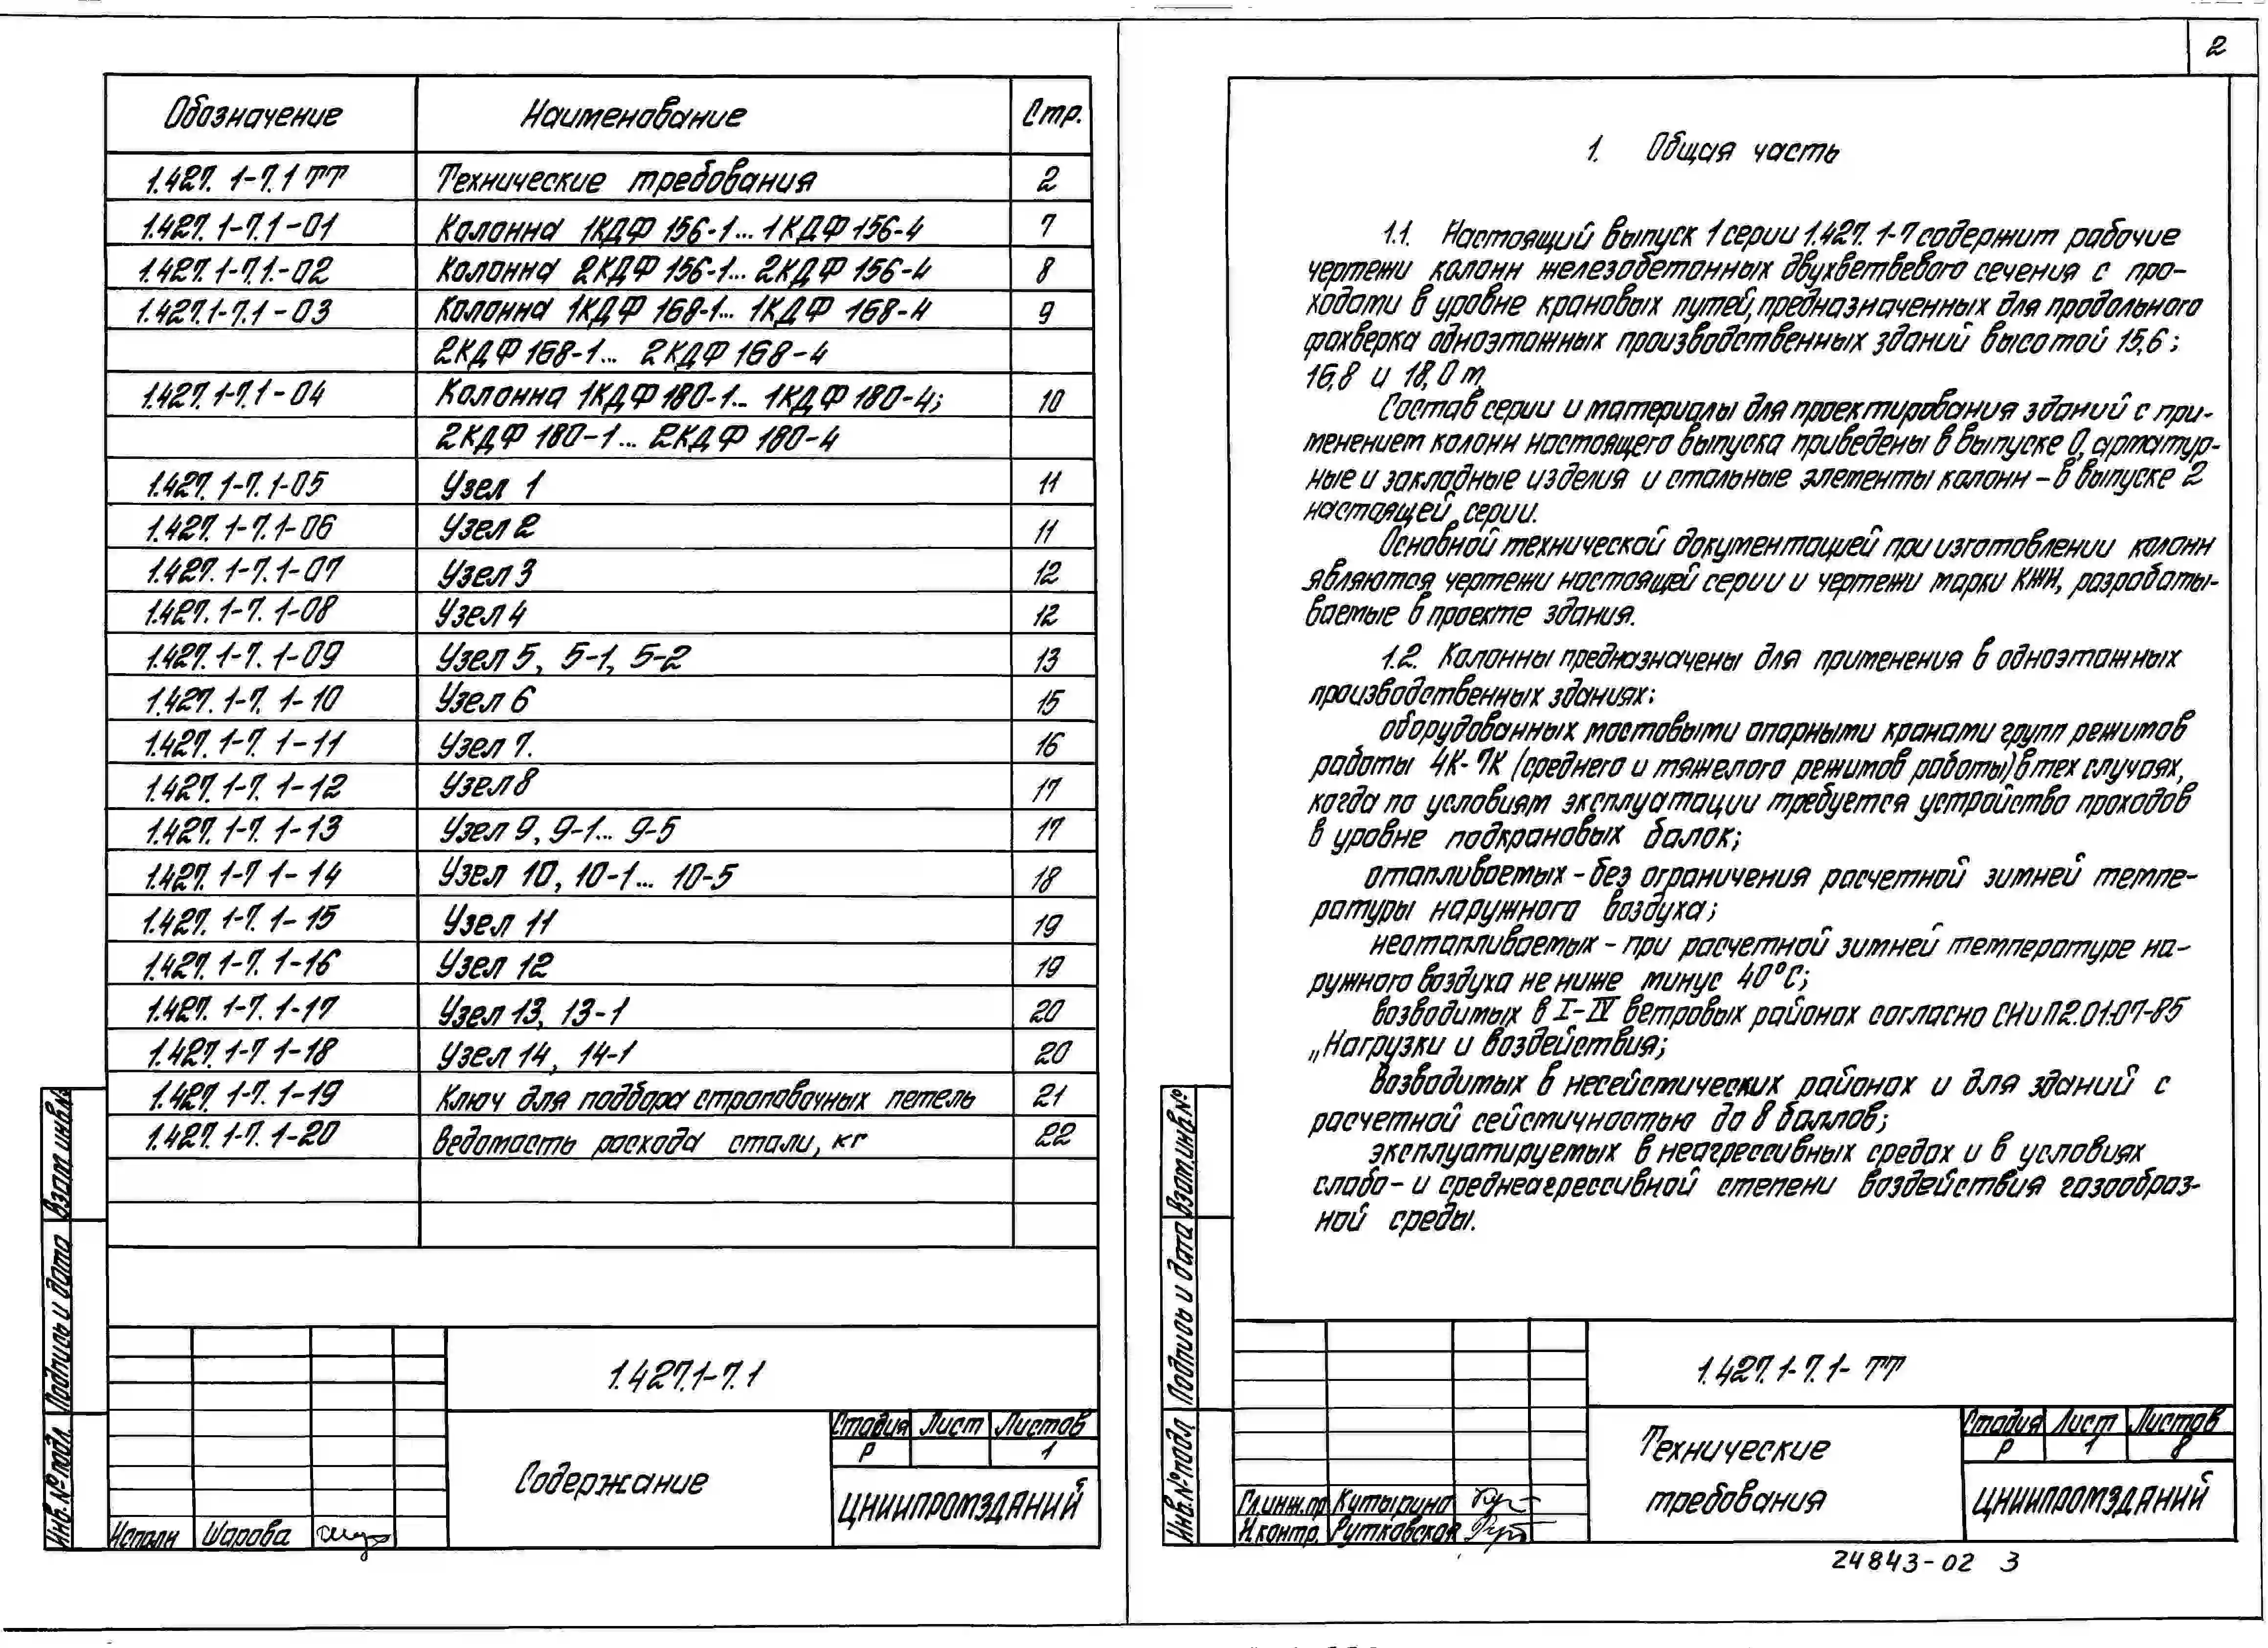 Обозначение Наименование Стр.
1.427.1-7.1 ТТ Технические требования 2
1.427.1-7.1-01 Колонна 1КДФ 156-1... 1КДФ 156-4 7
1.427.1-7.1.-02 Колонна 2КДФ 156-1... 2КДФ 156-4 8
1.427.1-7.1-03 Колонна 1КДФ 168-1... 1КДФ 168-4 9
2КДФ 168-1... 2КДФ 168-4
1.427.1-7.1-04 Колонна 1КДФ 180-1... 1КДФ 180-4; 10
2КДФ 180-1... 2КДФ 180-4
1.427.1-7.1-05 Узел 1 11
1.427.1-7.1-06 Узел 2 11
1.427.1-7.1-07 Узел 3 12
1.427.1-7.1-08 Узел 4 12
1.427.1-7.1-09 Узел 5, 5-1, 5-2 13
1.427.1-7.1-10 Узел 6 15
1.427.1-7.1-11 Узел 7. 16
1.427.1-7.1-12 Узел 8 17
1.427.1-7.1-13 Узел 9, 9-1... 9-5 17
1.427.1-7 1-14 Узел 10, 10-1... 10-5 18
1.427.1-7.1-15 Узел 11 19
1.427.1-7.1-16 Узел 12 19
1.427.1-7.1-17 Узел 13, 13-1 20
1.427.1-7 1-18 Узел 14, 14-1 20
1.427.1-7.1-19 Ключ для подбора строповочных петель 21
1.427.1-7.1-20 Ведомость расхода стали, кг 22
Взам. инв.№
Подпись и дата
Инв.№ подл.
1.427.1-7.1
Содержание
Стадия Лист Листов
Р 1
ЦНИИПРОМЗДАНИЙ
Исполн Шарова
2
1. Общая часть
1.1. Настоящий выпуск 1 серии 1.427.1-7 содержит рабочие
чертежи колонн железобетонных двухветвевого сечения с про-
ходами в уровне крановых путей, предназначенных для продольного
фахверка одноэтажных производственных зданий высотой 15,6;
16,8 и 18,0 м.
Состав серии и материалы для проектирования зданий с при-
менением колонн настоящего выпуска приведены в выпуске 0, арматур-
ные и закладные изделия и стальные элементы колонн - в выпуске 2
настоящей серии.
Основной технической документацией при изготовлении колонн
являются чертежи настоящей серии и чертежи марки КЖИ, разрабаты-
ваемые в проекте здания.
1.2. Колонны предназначены для применения в одноэтажных
производственных зданиях:
оборудованных мостовыми опорными кранами групп режимов
работы 4К-7К (среднего и тяжелого режимов работы) в тех случаях,
когда по условиям эксплуатации требуется устройство проходов
в уровне подкрановых балок;
отапливаемых - без ограничения расчетной зимней темпе-
ратуры наружного воздуха;
неотапливаемых - при расчетной зимней температуре на-
ружного воздуха не ниже минус 40°С;
возводимых в I-IV ветровых районах согласно СНиП2.01.07-85
„Нагрузки и воздействия;
возводимых в несейсмических районах и для зданий с
расчетной сейсмичностью до 8 баллов;
эксплуатируемых в неагрессивных средах и в условиях
слабо- и среднеагрессивной степени воздействия газообраз-
ной среды.
Взам.инв.№
Подпись и дата
Инв.№подл
1.427.1-7.1-ТТ
Технические
требования
Стадия Лист Листов
Р 1 8
ЦНИИПРОМЗДАНИЙ
Гл.инж.пр Кутырина
Н.контр. Рутковская
24843-02 3